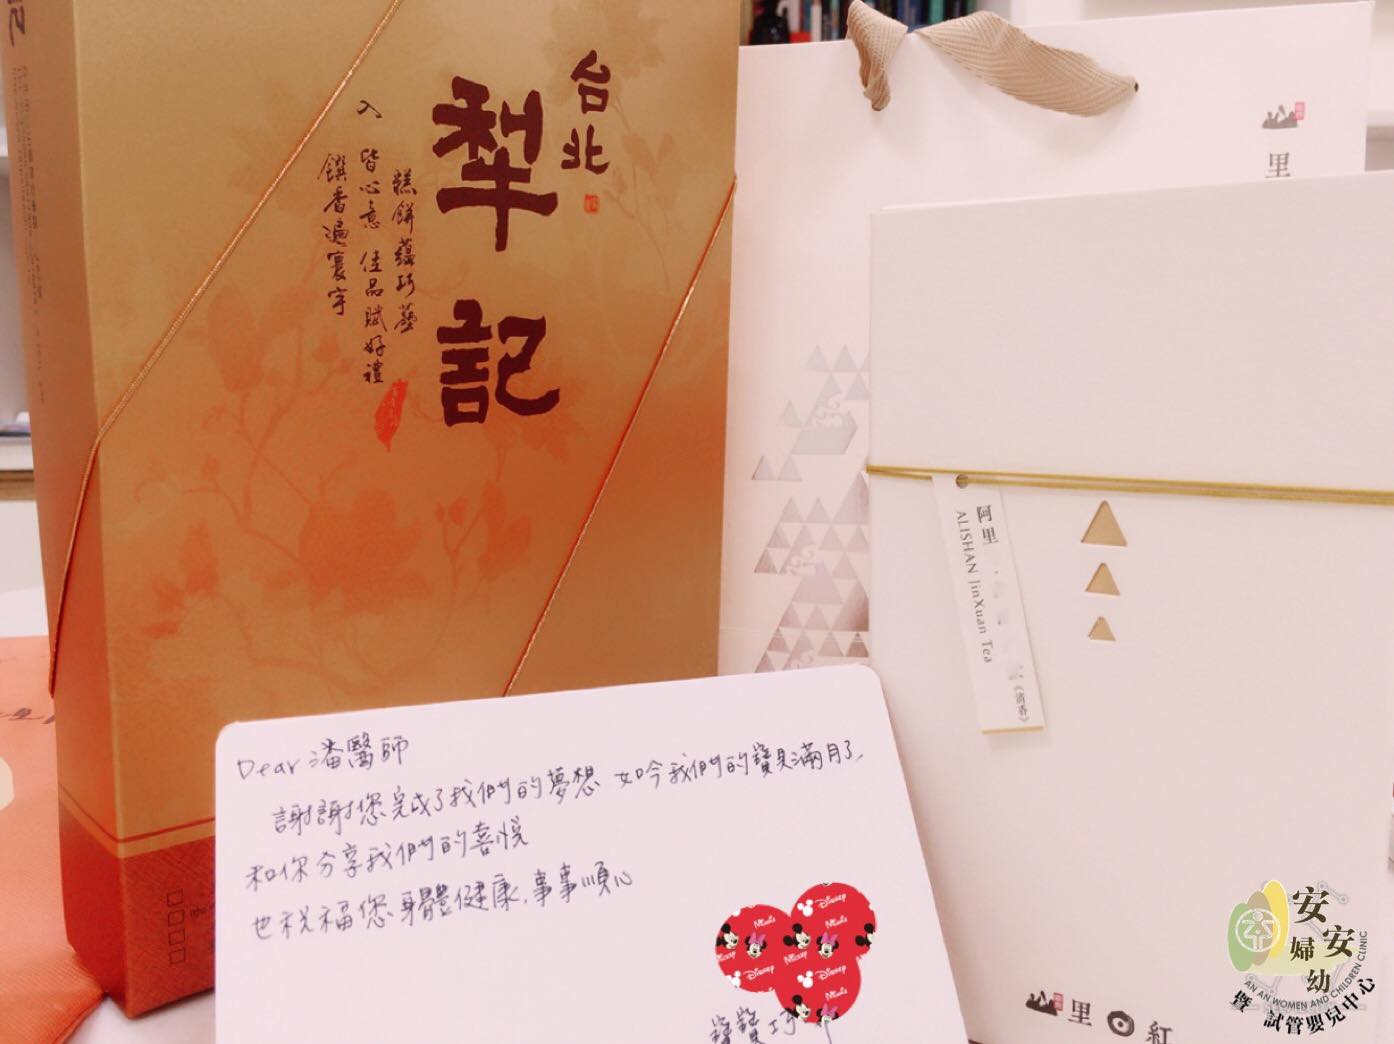 台北
犁記
糕餅蘊巧藝
入皆心意 佳品賦好禮
饌香遍寰宇
里
阿里
ALISHAN JinXuan Tea
《清香》
Dear 潘醫師
謝謝您完成了我們的夢想 如今我們的寶貝滿月了,
和你分享我們的喜悅
也祝福您身體健康,事事順心
Disney
Minnie
Mickey
Disney
Minnie
Mickey
Disney
Minnie
里 紅
安安婦幼
AN AN WOMEN AND CHILDREN CLINIC
暨 試管嬰兒中心